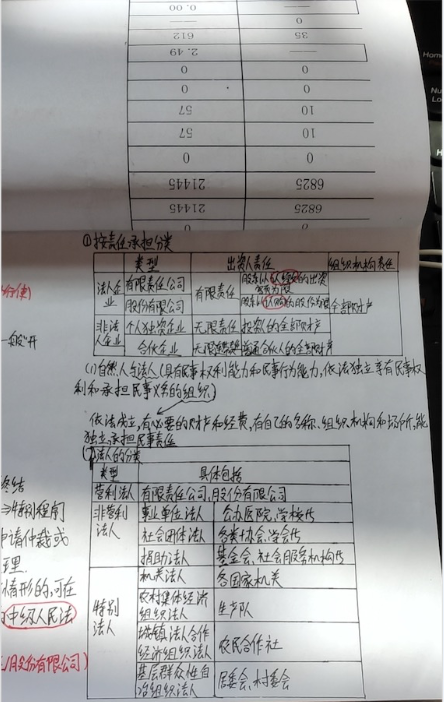 0.00
—
612
35
2.49
—
0
0
0
0
57
10
57
10
0
0
21445
6825
21445
6825
①按责任承担分类
类型 出资人责任 组织机构责任
法人企业 有限责任公司 有限责任 股东以认缴的出资额为限 全部财产
股份有限公司 股东以认购的股份为限
非法人企业 个人独资企业 无限责任 投资人的全部财产
合伙企业 普通合伙人的全部财产
(1)自然人与法人(具有民事权利能力和民事行为能力,依法独立享有民事权
利和承担民事义务的组织。)
依法成立,有必要的财产和经费,有自己的名称、组织机构和场所,能
独立承担民事责任
法人的分类
类型 具体包括
营利法人 有限责任公司,股份有限公司
非营利法人 事业单位法人 公办医院,学校代
社会团体法人 各类协会,学会代
捐助法人 基金会,社会服务机构代
特别法人 机关法人 各国家机关
农村集体经济组织法人 生产队
城镇法合作经济组织法人 农民合作社
基层群众性自治组织法人 居委会,村委会
终结
特别程序
申请仲裁或
理
情形的,可在
中级人民法
股份有限公司)